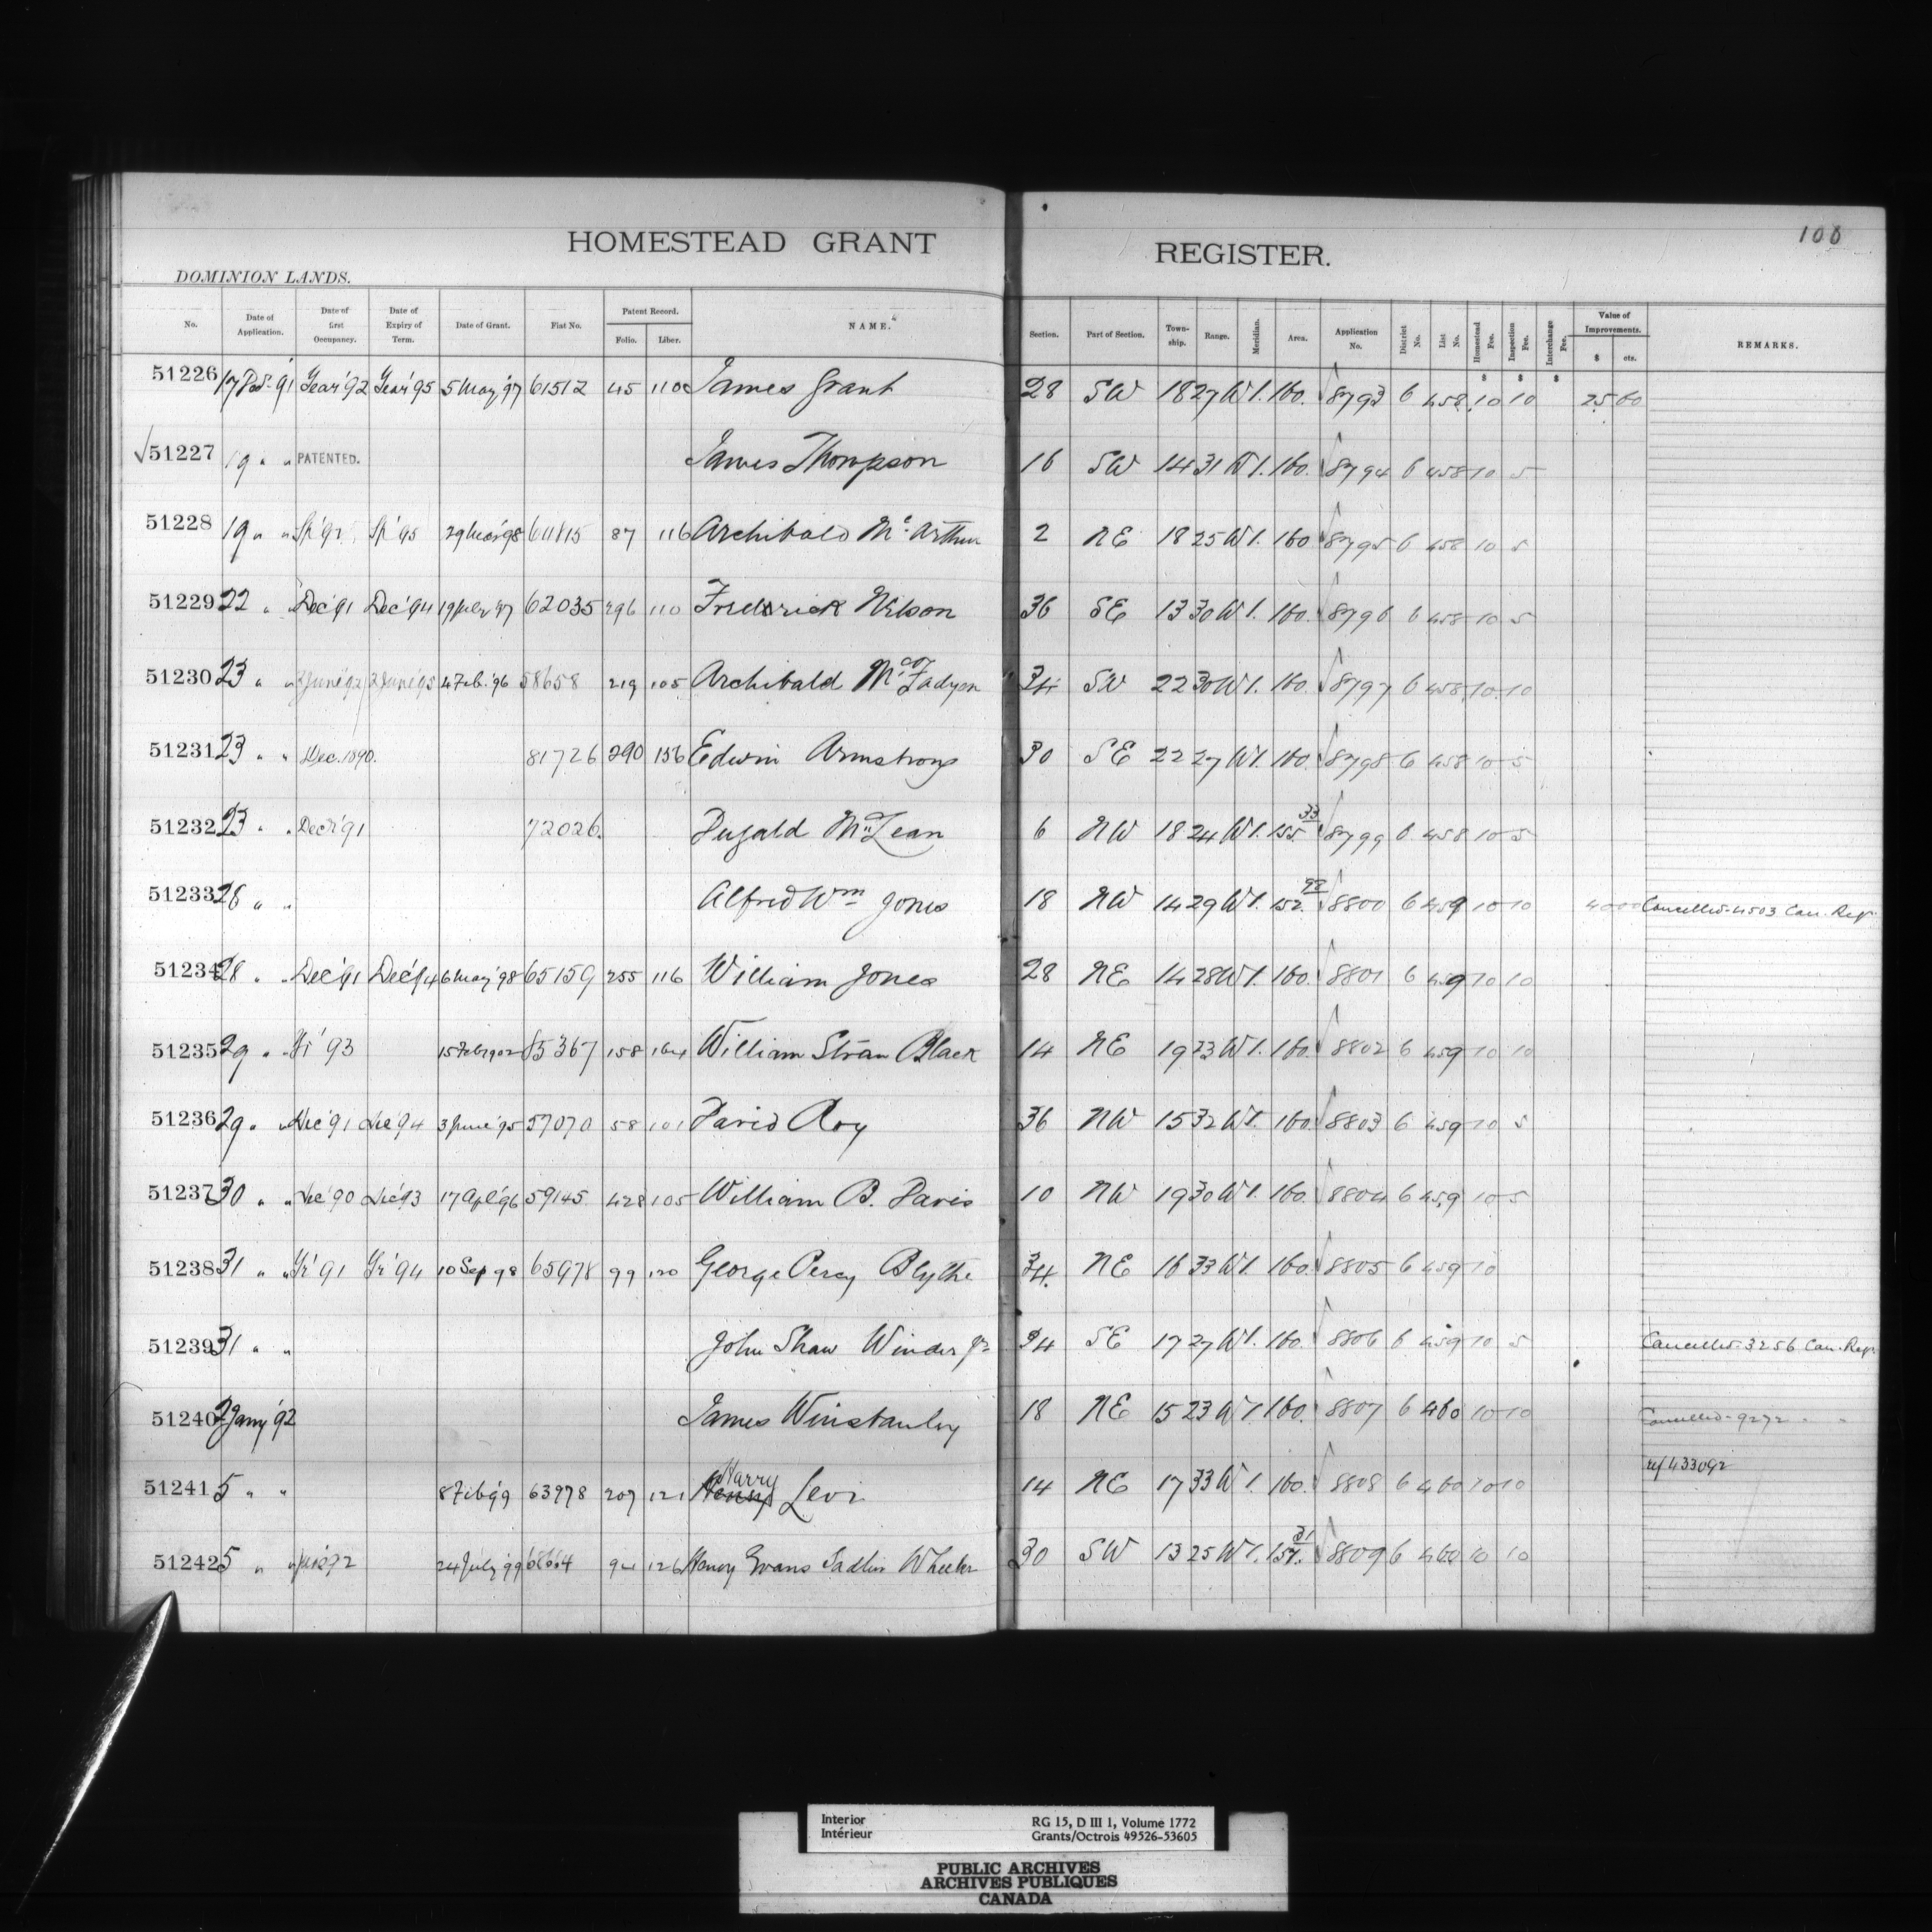 HOMESTEAD GRANT REGISTER.
100
DOMINION LANDS.
No. Date of Application. Date of first Occupancy. Date of Expiry of Term. Date of Grant. Fiat No. Patent Record. Folio. Liber. NAME. Section. Part of Section. Township. Range. Meridian. Area. Application No. District No. List No. Homestead Fee. Inspection Fee. Interchange Fee. Value of Improvements. $ cts. REMARKS.
51226 17 91 Year '92 Year '95 5 May '97 61512 45 110 James Grant 28 SW 18 27 W 1. 160. 8793 6 458 10 10 25 00
51227 19 " " PATENTED. James Thompson 16 SW 14 31 W 1. 160. 8794 6 458 10 5
51228 19 " " Sp '92 Sp '95 29 Mar '98 87 116 Archibald Mc Arthur 2 NE 18 25 W 1. 160 8795 6 458 10 5
51229 22 " " Dec '91 Dec '94 19 July '97 62035 296 110 Frederick Wilson 36 SE 13 30 W 1. 160. 8796 6 458 10 5
51230 23 " " 2 June '92 2 June '95 4 Feb. '96 58658 219 105 Archibald Mc Fadyen 34 SW 22 30 W 1. 160. 8797 6 458 10 10
51231 23 " " Dec. 1890. 81726 290 156 Edwin Armstrong 30 SE 22 27 W 1. 160. 8798 6 458 10 5
51232 23 " " Decr '91 72026. Dugald McLean 6 NW 18 24 W 1. 155.33 8799 6 458 10 5
51233 28 " " Alfred Wm Jones 18 NW 14 29 W 1. 152.98 8800 6 459 10 10 Cancelled 4503 Can. Regr.
51234 28 " " Dec '91 Dec '94 6 May '98 65159 255 116 William Jones 28 NE 14 28 W 1. 160. 8801 6 459 10 10
51235 29 " " Yr '93 15 Feb 1902 85367 158 164 William Black 14 NE 19 23 W 1. 160. 8802 6 459 10 10
51236 29 " " Dec '91 Dec '94 3 June '95 57070 58 101 David Roy 36 NW 15 32 W 1. 160. 8803 6 459 10 5
51237 30 " " Dec '90 Dec '93 17 Apl '96 59145 428 105 William B. Davis 10 NW 19 30 W 1. 160. 8804 6 459 10 5
51238 31 " " Yr '91 Yr '94 10 Sep 98 65978 99 120 George Percy Blythe 34. NE 16 33 W 1. 160. 8805 6 459 10
51239 31 " " John Shaw Winder Jr 34 SE 17 27 W 1. 160. 8806 6 459 10 5 Cancelled 3256 Can. Regr.
51240 2 Jany '92 James Winstanley 18 NE 15 23 W 1. 160. 8807 6 460 10 10 Cancelled 9272 " "
51241 5 " " 8 Feb '99 63978 207 121 Henry Harry Levi 14 NE 17 33 W 1. 160. 8808 6 460 10 10 ref 433092
51242 5 " " 24 July '99 94 126 Henry Evans Sadlier Wheeler 30 SW 13 25 W 1. 8809 6 460 10 10
Interior
Intérieur
RG 15, D III 1, Volume 1772
Grants/Octrois 49526-53605
PUBLIC ARCHIVES
ARCHIVES PUBLIQUES
CANADA